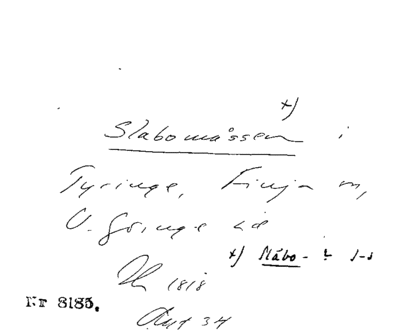 x)
Slabomåssen i
Tyringe, Finja m,
V. Göinge hd
x) Slåbo-
1818
Nr 8185.
34